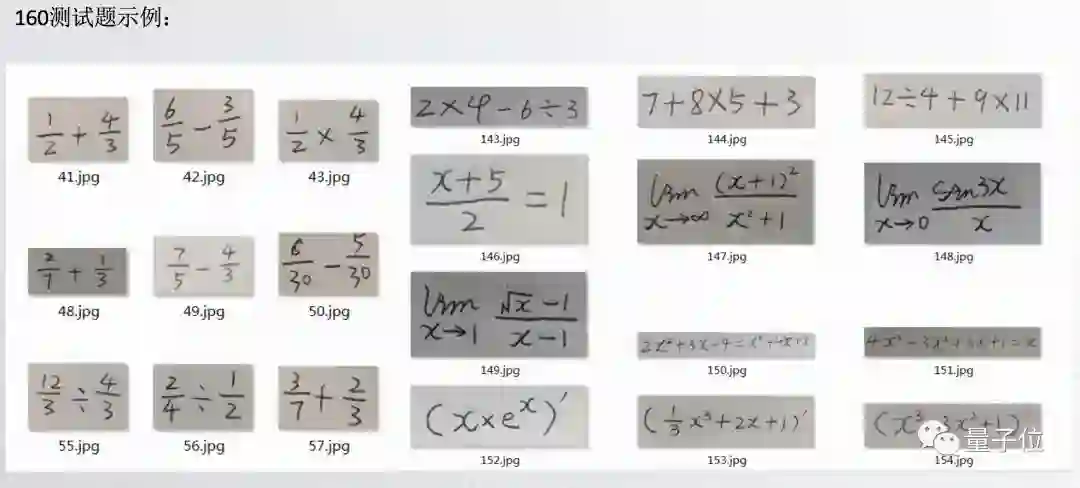 160测试题示例：
1/2 + 4/3
41.jpg
6/5 − 3/5
42.jpg
1/2 × 4/3
43.jpg
2×4−6÷3
143.jpg
7+8×5+3
144.jpg
12÷4+9×11
145.jpg
(x+5)/2 = 1
146.jpg
lim x→∞ (x+1)²/(x²+1)
147.jpg
lim x→0 sin3x/x
148.jpg
2/7 + 1/3
48.jpg
7/5 − 4/3
49.jpg
6/30 − 5/30
50.jpg
lim x→1 (√x −1)/(x−1)
149.jpg
150.jpg
151.jpg
12/3 ÷ 4/3
55.jpg
2/4 ÷ 1/2
56.jpg
3/7 + 2/3
57.jpg
(x×eˣ)′
152.jpg
(1/3 x³+2x+1)′
153.jpg
154.jpg
量子位